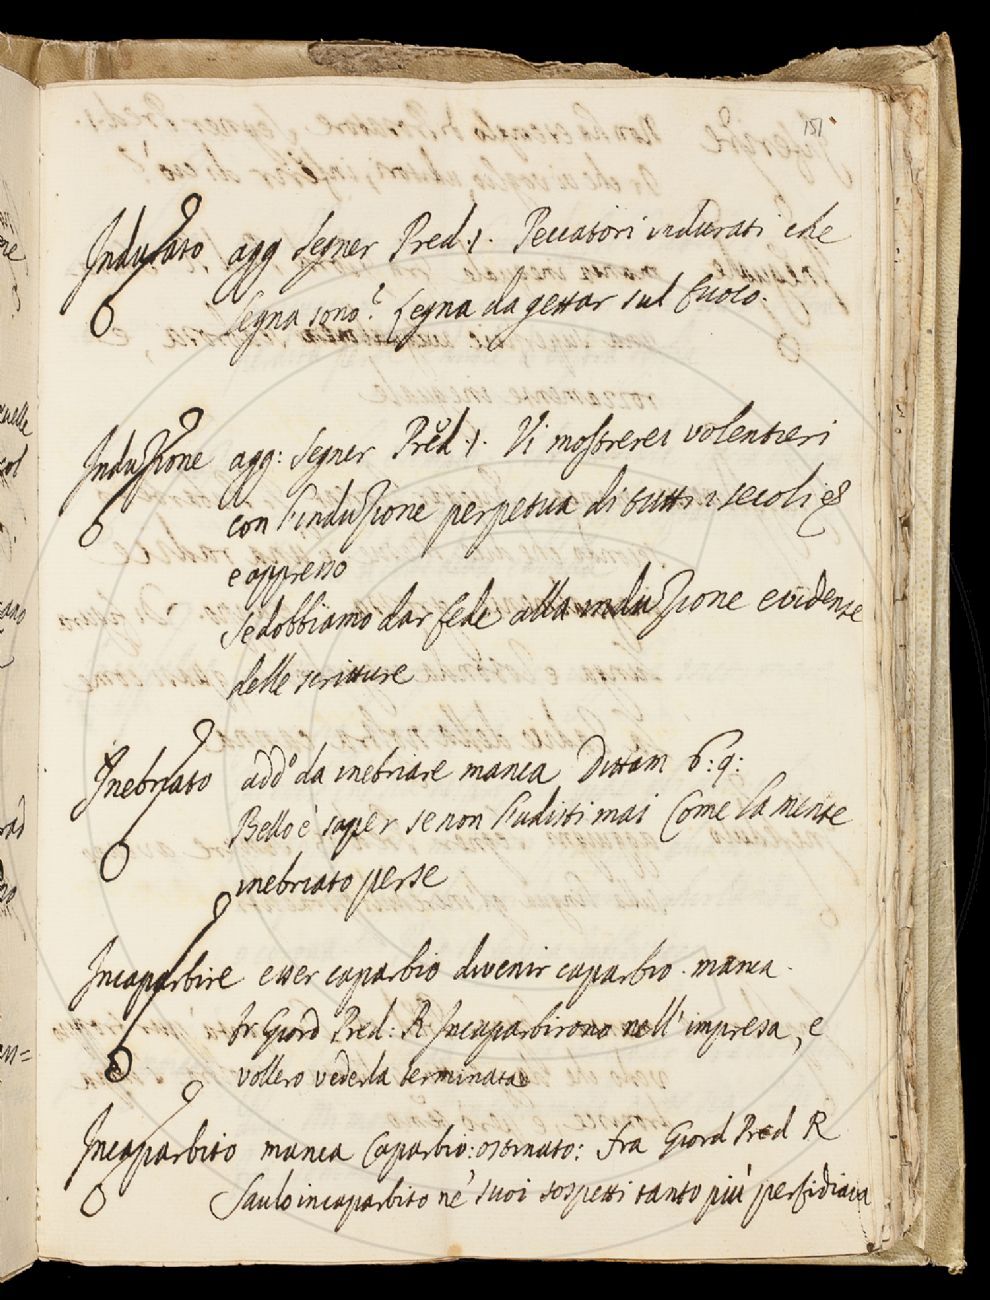 151
Indurato agg Segner Pred. 1. Peccatori indurati che
legna sono? legna da gettar sul fuoco.
Induzione agg: Segner Pred. 1. Vi mostrerei volentieri
con l'induzione perpetua di tutti i secoli &
e appresso
Se dobbiamo dar fede alla induzione evidente
delle scritture
Inebriato add.° da inebriare manca Dittam 6: 9:
Bello è saper se non l'udisti mai Come la mente
inebriato perse
Incaparbire esser caparbio divenir caparbio. manca.
fr. Giord Pred: R Incaparbirono nell' impresa, e
vollero vederla terminata
Incaparbito manca Caparbio: ostinato: fra Giord Pred R
Saulo incaparbito ne' suoi sospetti tanto più perfidiava